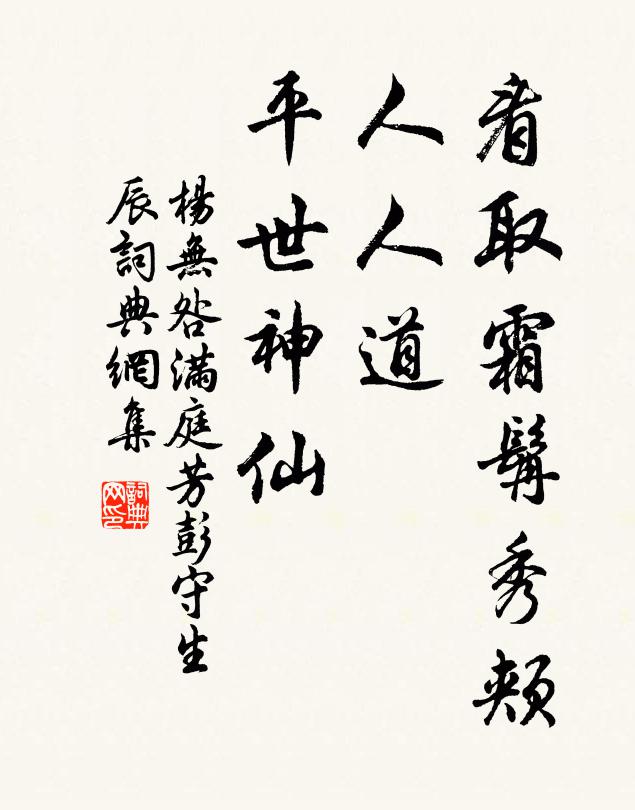 看取霜髯秀頰
人人道
平世神仙
楊無咎滿庭芳彭守生
辰詞典網集
詞典
网印